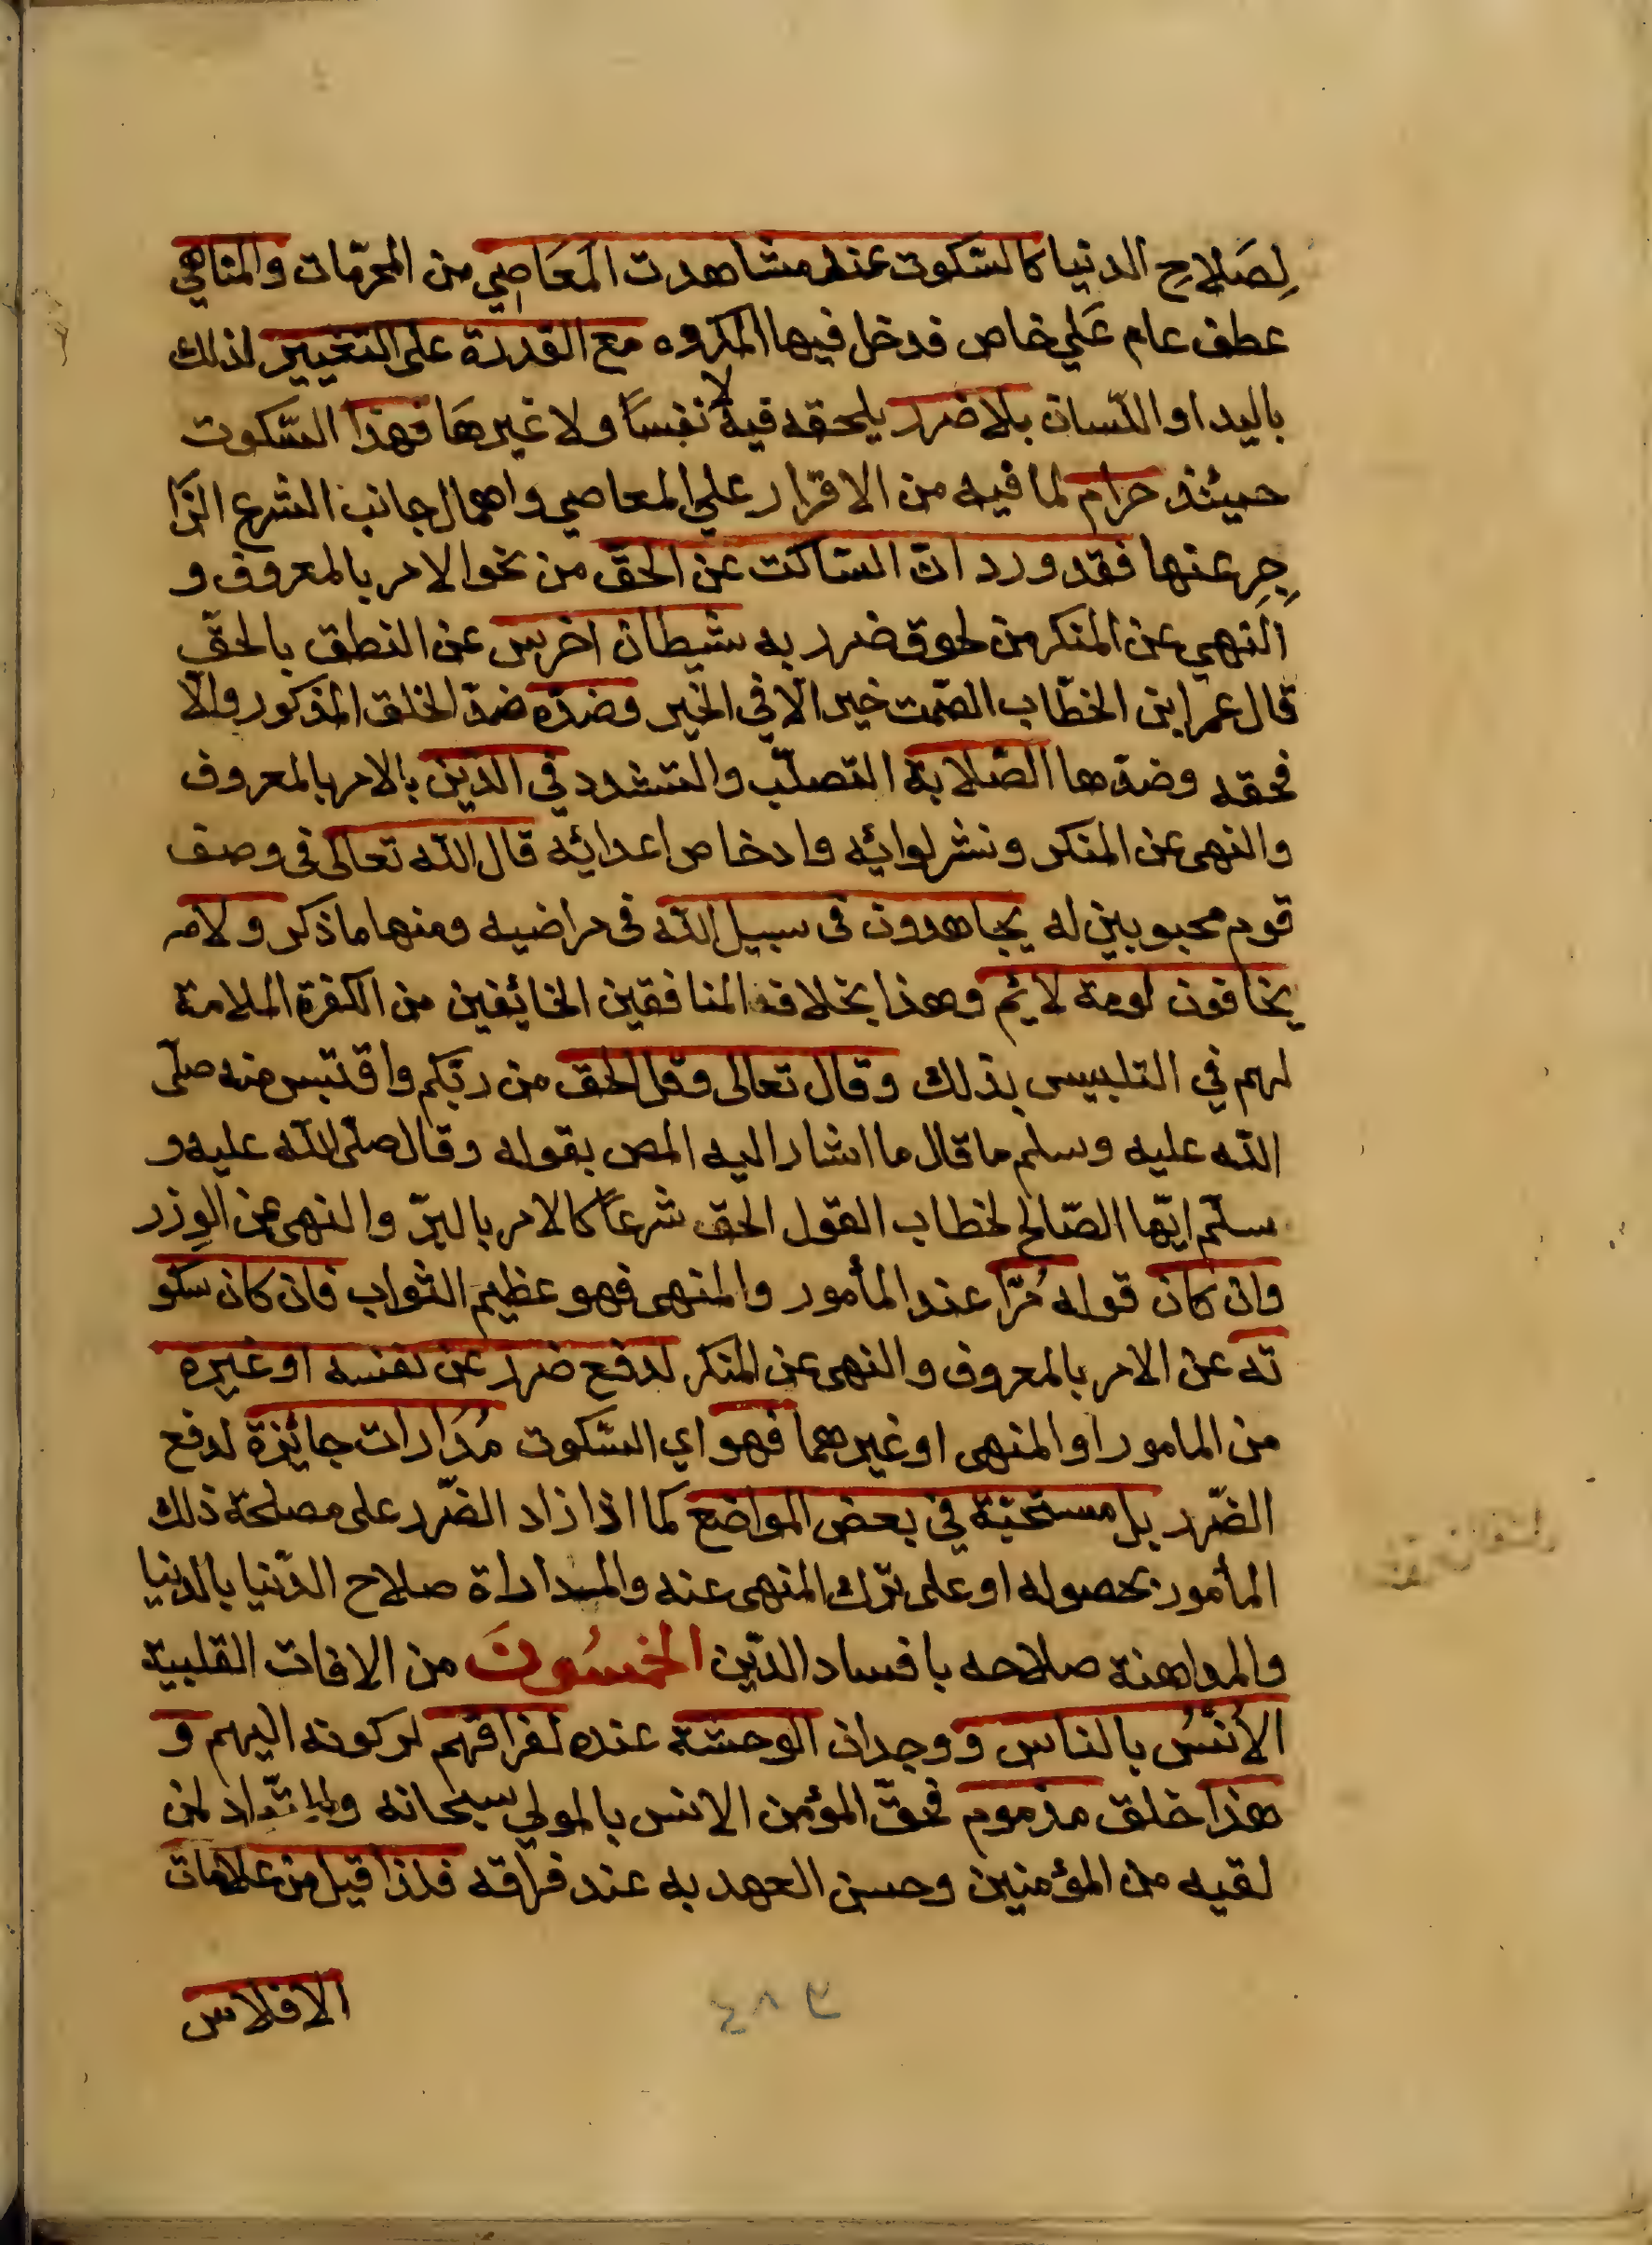 لِصَلاحِ الدنيا كالسّكوت عند مشاهدت المَعَاصِي من المحرّمات والمناهي
عطف عام عَلي خاص فدخل فيها المكروه مع القدرة على التغيير لذلك
باليد او اللّسان بلا ضرر يلحقه فيه لا نفسًا ولا غيرهَا فهذا السّكوت
حينئذ حرام لما فيه من الاقرار علي المعاصي واهمال جانب الشرع الزّا
جِرِ عنها فقد ورد انّ السّاكت عن الحقّ من نحو الامر بالمعروف و
النهي عن المنكر من لحوق ضرر به شيطان اخرس عن النطق بالحقّ
قال عمر ابن الخطّاب الصّمت خير الّا في الخير وضدّه ضدّ الخلق المذكور والّا
فحقه وضدّها الصّلابة التصلّب والتشدد في الدّين بالامر بالمعروف
والنهى عن المنكر ونشر لوائه وادخاص اعدائه قال اللّه تعالى فى وصف
قوم محبوبين له يجاهدون فى سبيل اللّه فى مراضيه ومنها ما ذكر ولامه
يخافون لومة لائم وهذا بخلاف المنافقين الخائفين من الكفرة الملامة
لهم في التلبيس بذلك وقال تعالى وقل الحق من ربّكم واقتبس منه صلّى
اللّه عليه وسلم ما قال ما اشار اليه المص بقوله وقال صلّى اللّه عليه و
سلّم ايّها الصّالح لخطاب القول الحق شرعًا كالامر بالبرّ والنهى عن الوِزر
وان كان قوله مُرّا عند المأمور والمنهى فهو عظيم الثواب فان كان سكو
ته عن الامر بالمعروف والنهى عن المنكر لدفع ضرر عن نفسه او غيره
من المامور او المنهى او غيرهما فهو اي السّكوت مُدَارات جائزة لدفع
الضّرر بل مستحبّة في بعض المواضع كما اذا زاد الضّرر على مصلحة ذلك
المأمور بحصوله او على ترك المنهى عنه والمداراة صلاح الدّنيا بالدنيا
والمداهنة صلاحه بافساد الدّين الخمسُونَ من الافات القلبية
الأنْسُ بالناس ووجدان الوحشة عنده لفراقهم لركونه اليهم و
هذا خلق مذموم فحقّ المؤمن الانس بالمولي سبحانه لمن
لقيه من المؤمنين وحسن العهد به عند فراقه فلذا قيل من علامات
الافلاس
٣٨٤